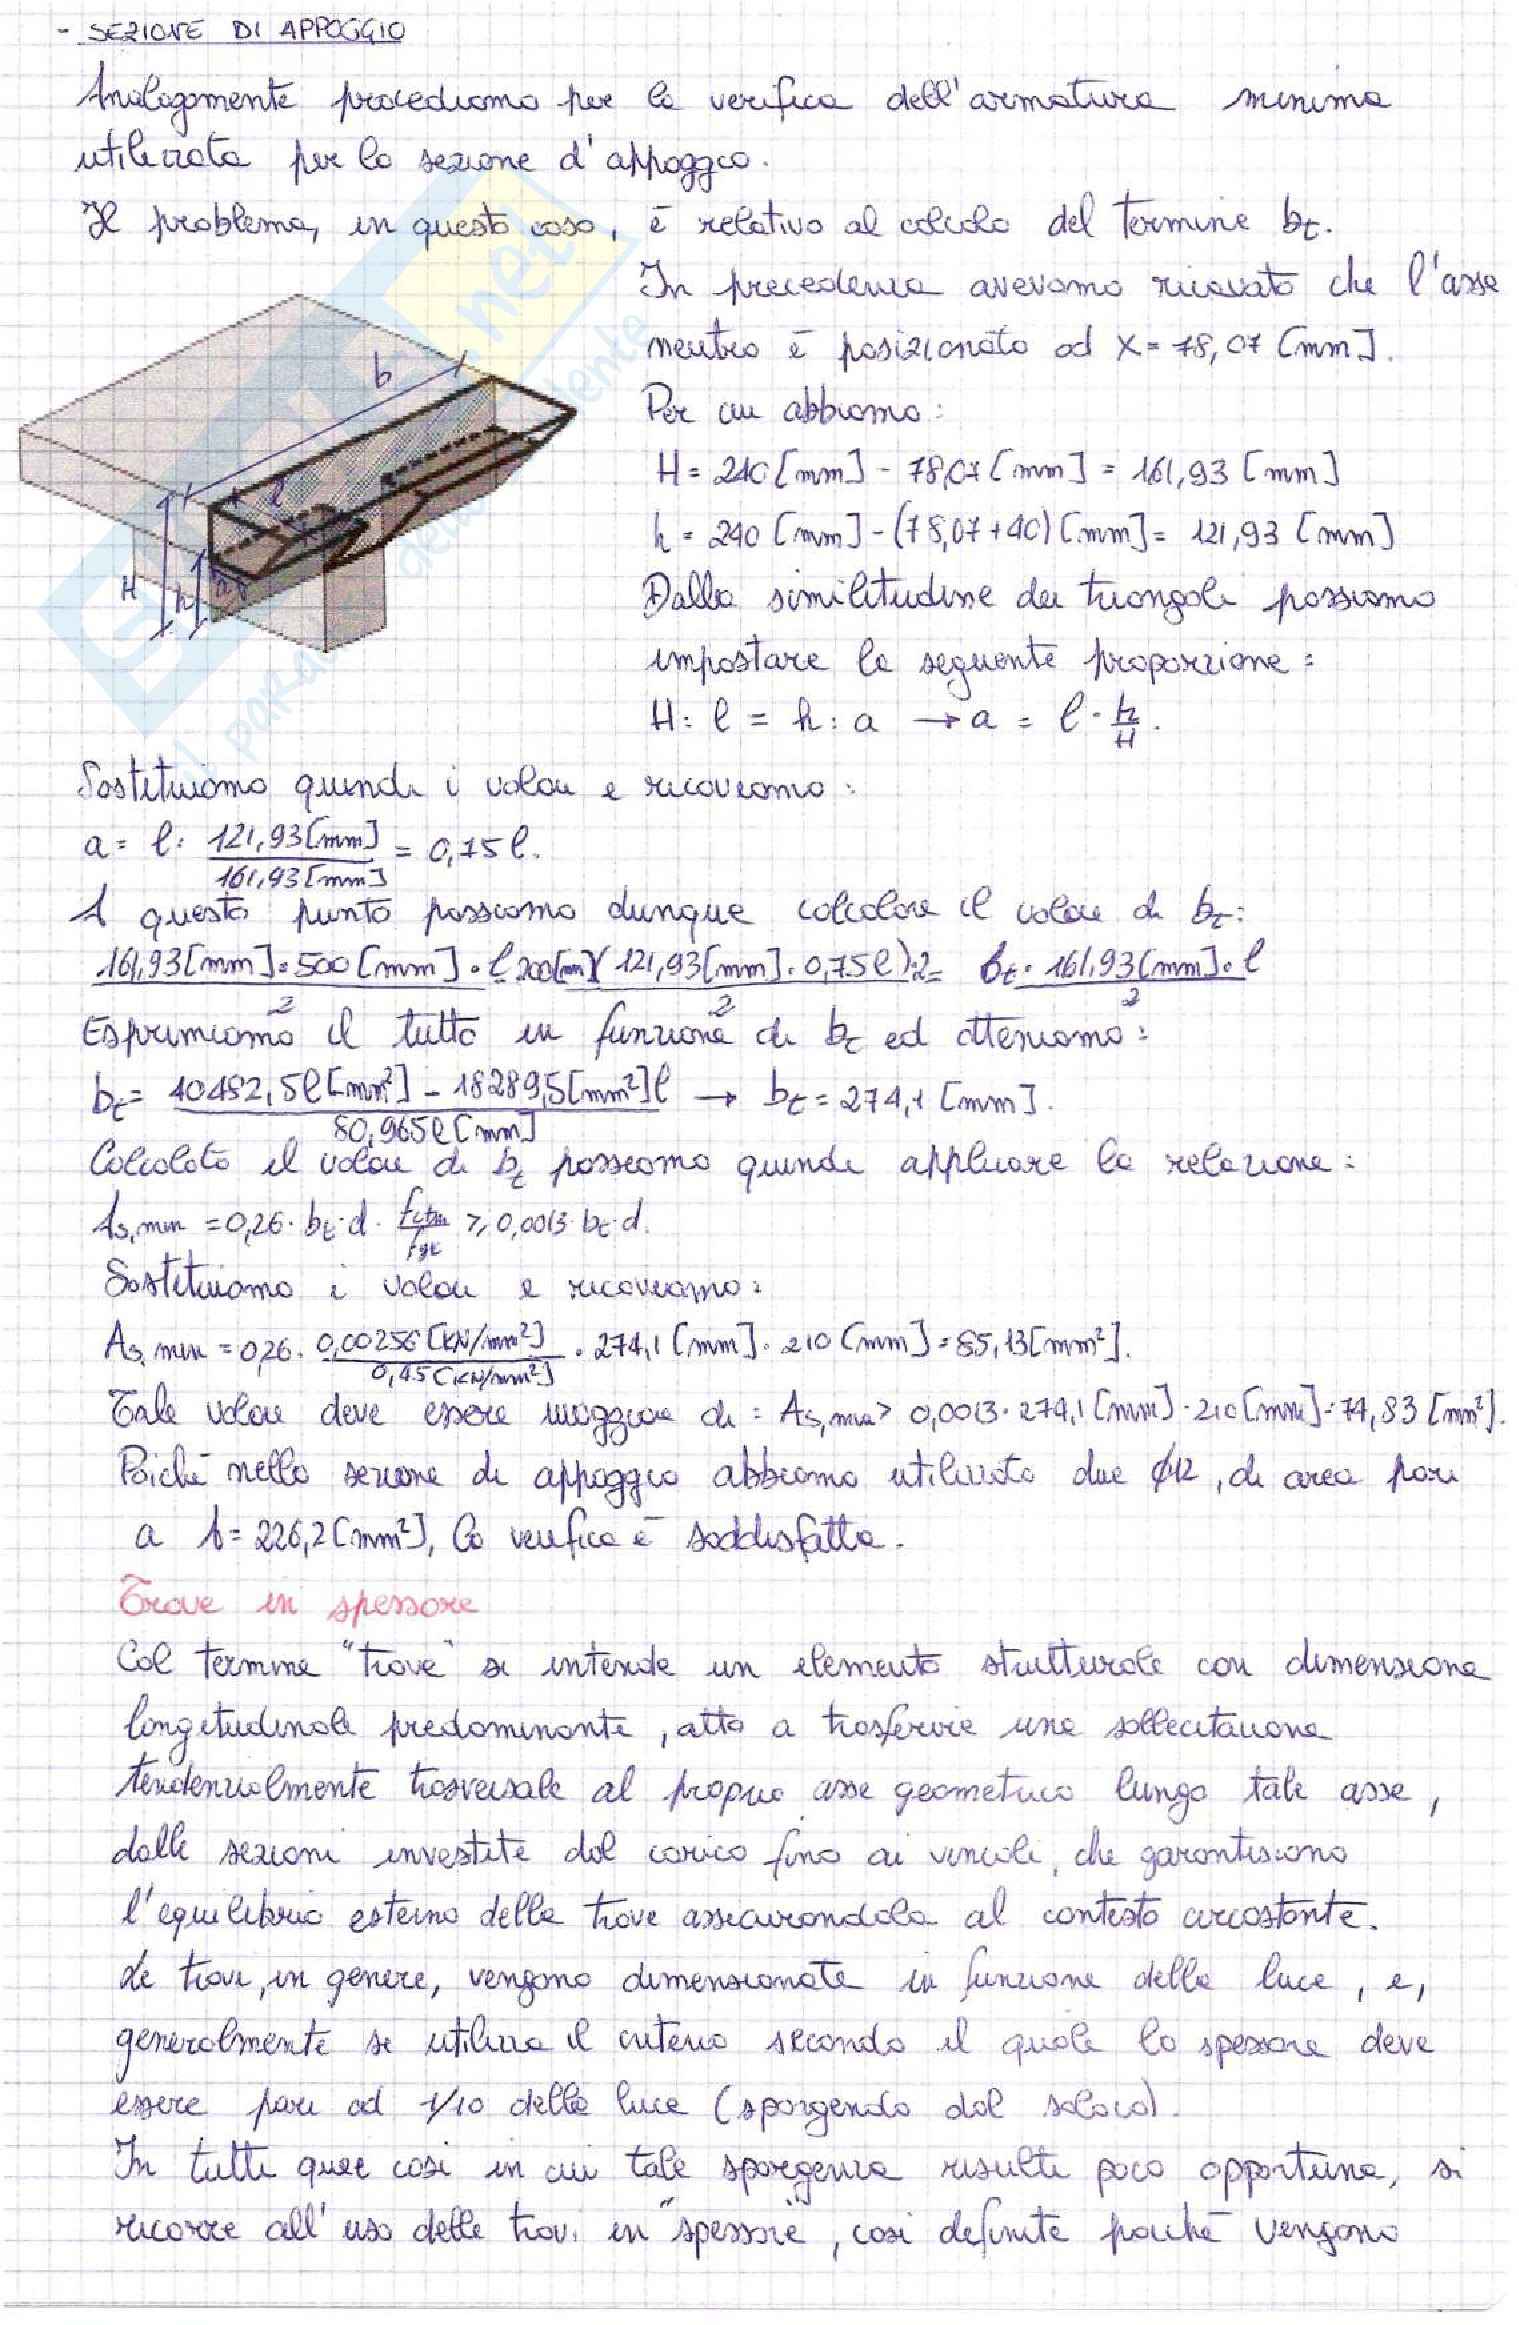 - SEZIONE DI APPOGGIO
Analogamente procediamo per la verifica dell'armatura minima
utilizzata per la sezione d'appoggio.
Il problema, in questo caso, è relativo al calcolo del termine bt.
In precedenza avevamo ricavato che l'asse
neutro è posizionato ad X = 78,07 [mm].
Per cui abbiamo:
H = 240 [mm] - 78,07 [mm] = 161,93 [mm]
h = 240 [mm] - (78,07+40) [mm] = 121,93 [mm]
Dalla similitudine dei triangoli possiamo
impostare la seguente proporzione:
H : l = h : a → a = l · h/H.
b
l
H
h
a
Sostituiamo quindi i valori e ricaviamo:
a = l · 121,93 [mm] / 161,93 [mm] = 0,75 l.
A questo punto possiamo dunque calcolare il valore di bt:
161,93 [mm] · 500 [mm] · l / 2 200 [mm] (121,93 [mm] · 0,75 l) · 2 / 2 = bt · 161,93 [mm] · l / 2
Esprimiamo il tutto in funzione di bt ed otteniamo:
bt = 40482,5 l [mm²] - 18289,5 [mm²] l / 80,965 l [mm] → bt = 274,1 [mm].
Calcolato il valore di bt possiamo quindi applicare la relazione:
As,min = 0,26 · bt · d · fctm/fyk ≥ 0,0013 · bt · d.
Sostituiamo i valori e ricaviamo:
As,min = 0,26 · 0,00256 [KN/mm²] / 0,45 [KN/mm²] · 274,1 [mm] · 210 [mm] = 85,13 [mm²].
Tale valore deve essere maggiore di: As,min > 0,0013 · 274,1 [mm] · 210 [mm] = 74,83 [mm²].
Poiché nella sezione di appoggio abbiamo utilizzato due ϕ12, di area pari
a A = 226,2 [mm²], la verifica è soddisfatta.
Trave in spessore
Col termine "trave" si intende un elemento strutturale con dimensione
longitudinale predominante, atto a trasferire una sollecitazione
tendenzialmente trasversale al proprio asse geometrico lungo tale asse,
dalle sezioni investite dal carico fino ai vincoli, che garantiscono
l'equilibrio esterno della trave assicurandola al contesto circostante.
Le travi, in genere, vengono dimensionate in funzione della luce, e,
generalmente si utilizza il criterio secondo il quale lo spessore deve
essere pari ad 1/10 della luce (sporgendo dal solaio).
In tutti quei casi in cui tale sporgenza risulti poco opportuna, si
ricorre all'uso delle travi in "spessore", così definite poiché vengono